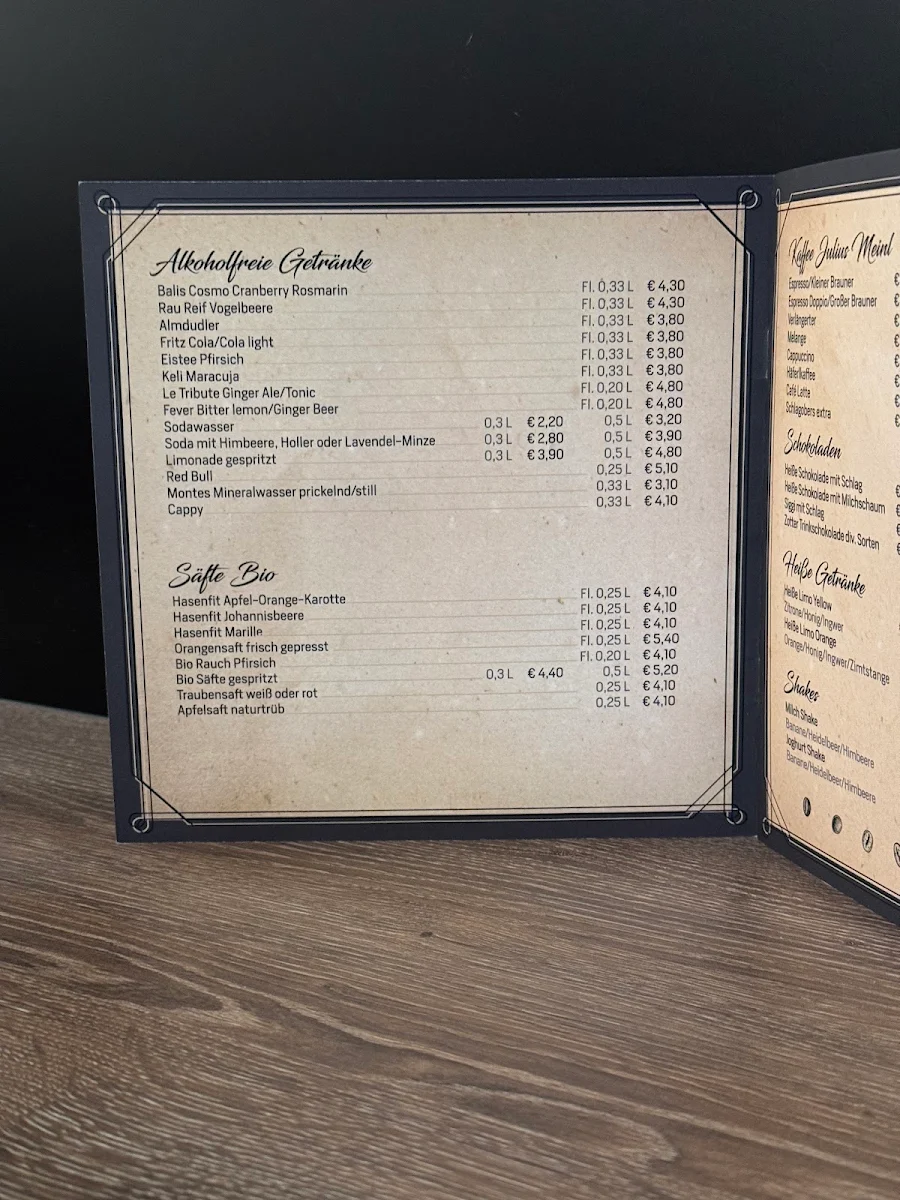 Alkoholfreie Getränke
Balis Cosmo Cranberry Rosmarin Fl. 0,33 L € 4,30
Rau Reif Vogelbeere Fl. 0,33 L € 4,30
Almdudler Fl. 0,33 L € 3,80
Fritz Cola/Cola light Fl. 0,33 L € 3,80
Eistee Pfirsich Fl. 0,33 L € 3,80
Keli Maracuja Fl. 0,33 L € 3,80
Le Tribute Ginger Ale/Tonic Fl. 0,20 L € 4,80
Fever Bitter lemon/Ginger Beer Fl. 0,20 L € 4,80
Sodawasser 0,3 L € 2,20 0,5 L € 3,20
Soda mit Himbeere, Holler oder Lavendel-Minze 0,3 L € 2,80 0,5 L € 3,90
Limonade gespritzt 0,3 L € 3,90 0,5 L € 4,80
Red Bull 0,25 L € 5,10
Montes Mineralwasser prickelnd/still 0,33 L € 3,10
Cappy 0,33 L € 4,10
Säfte Bio
Hasenfit Apfel-Orange-Karotte Fl. 0,25 L € 4,10
Hasenfit Johannisbeere Fl. 0,25 L € 4,10
Hasenfit Marille Fl. 0,25 L € 4,10
Orangensaft frisch gepresst Fl. 0,25 L € 5,40
Bio Rauch Pfirsich Fl. 0,20 L € 4,10
Bio Säfte gespritzt 0,3 L € 4,40 0,5 L € 5,20
Traubensaft weiß oder rot 0,25 L € 4,10
Apfelsaft naturtrüb 0,25 L € 4,10
Kaffee Julius Meinl
Espresso/Kleiner Brauner €
Espresso Doppio/Großer Brauner €
Verlängerter €
Melange €
Cappuccino €
Häferlkaffee €
Café Latta €
Schlagobers extra €
Schokoladen
Heiße Schokolade mit Schlag €
Heiße Schokolade mit Milchschaum €
Siggi mit Schlag €
Zotter Trinkschokolade div. Sorten €
Heiße Getränke
Heiße Limo Yellow
Zitrone/Honig/Ingwer
Heiße Limo Orange
Orange/Honig/Ingwer/Zimtstange
Shakes
Milch Shake
Banane/Heidelbeer/Himbeere
Joghurt Shake
Banane/Heidelbeer/Himbeere